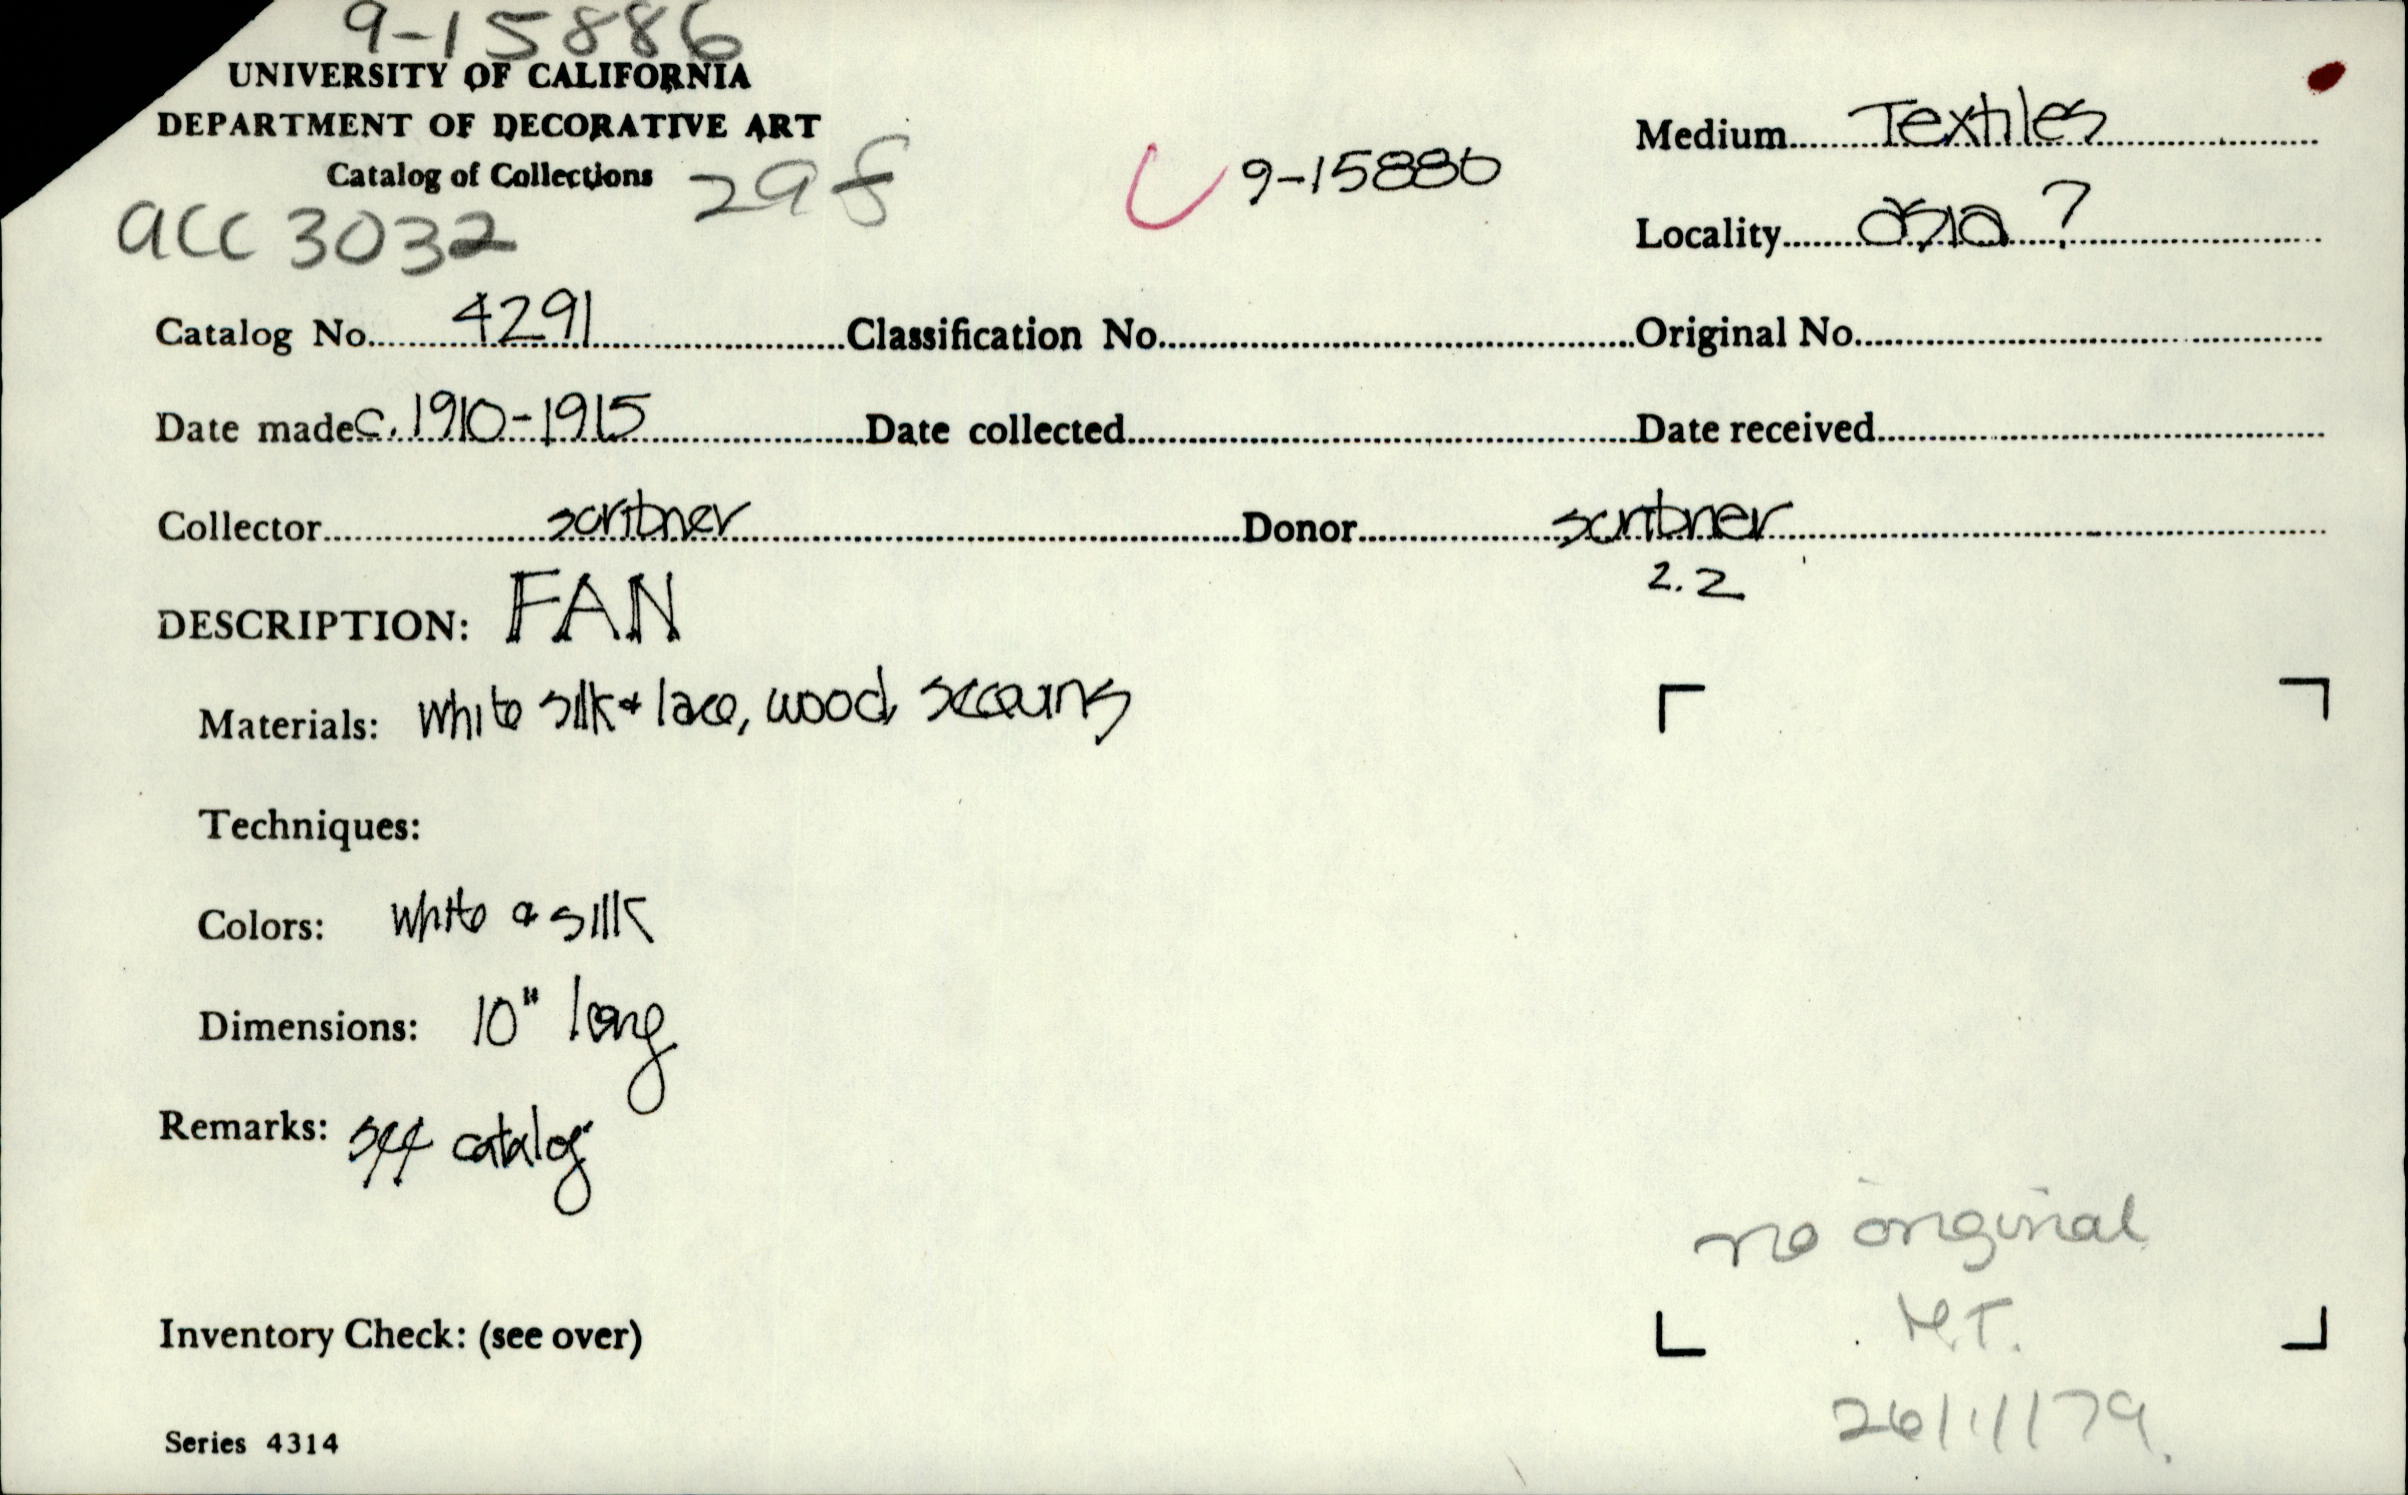 9-15886
UNIVERSITY OF CALIFORNIA
DEPARTMENT OF DECORATIVE ART
Catalog of Collections 29f
acc 3032
9-15886
Medium Textiles
Locality asia ?
Catalog No. 4291 Classification No. Original No.
Date made c. 1910-1915 Date collected Date received
Collector scribner Donor scribner
2.2
DESCRIPTION: FAN
Materials: white silk & lace, wood,
Techniques:
Colors: white & silk
Dimensions: 10" long
Remarks: see catalog
no original
M.T.
26/11/79.
Inventory Check: (see over)
Series 4314